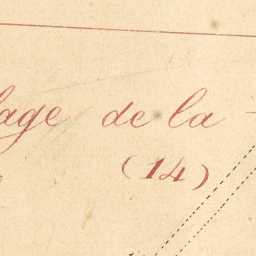 lage de la
(14)